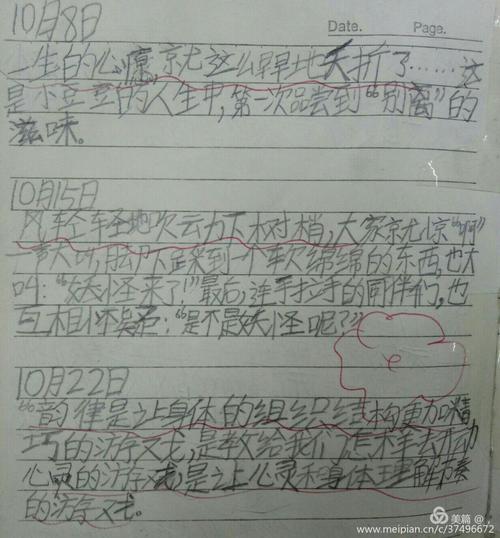 10月8日
Date. Page.
一生的心愿,就这么早早地夭折了……这
是小豆豆的人生中,第一次品尝到“别离”的
滋味。
10月15日
风轻轻地吹动下树梢,大家就惊“啊”
一声大叫,脚下踩到一个软绵绵的东西,也大
叫:“妖怪来了!”最后,连手拉手的同伴们,也
互相怀疑:“是不是妖怪呢?”
10月22日
“韵律是让身体的组织结构更加精
巧的游戏,是教给我们怎样去开动
心灵的游戏,是让心灵和身体理解节奏
的游戏。
美篇 @
www.meipian.cn/c/37496672